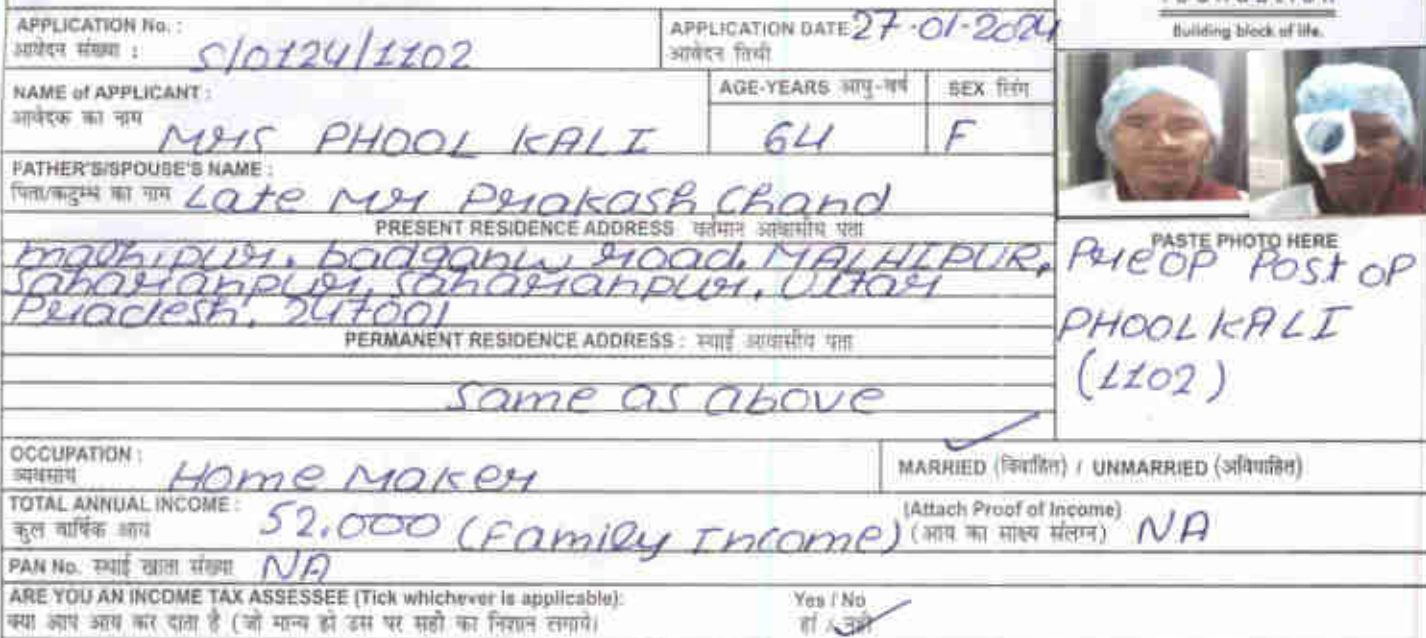 Building block of life.
APPLICATION No. :
आवेदन संख्या :
S/0124/1102
APPLICATION DATE 27-01-2024
आवेदन तिथी
NAME of APPLICANT :
आवेदक का नाम
MRS PHOOL KALI
AGE-YEARS आयु-वर्ष
64
SEX लिंग
F
FATHER'S/SPOUSE'S NAME :
पिता/कटुम्ब का नाम Late Mr Prakash Chand
PRESENT RESIDENCE ADDRESS वर्तमान आवासीय पता
malhipur, badganw road, MALHIPUR,
Saharanpur, Saharanpur, Uttar
Pradesh, 247001
PERMANENT RESIDENCE ADDRESS : स्थाई आवासीय पता
Same as above
PASTE PHOTO HERE
PreOP Post OP
PHOOL KALI
(1102)
OCCUPATION :
व्यवसाय Home Maker
MARRIED (विवाहित) / UNMARRIED (अविवाहित)
TOTAL ANNUAL INCOME :
कुल वार्षिक आय 52,000 (Family Income)
(Attach Proof of Income)
(आय का साक्ष्य संलग्न) NA
PAN No. स्थाई खाता संख्या NA
ARE YOU AN INCOME TAX ASSESSEE (Tick whichever is applicable):
क्या आप आय कर दाता है (जो मान्य हो उस पर सही का निशान लगाये।
Yes / No
हां / नही